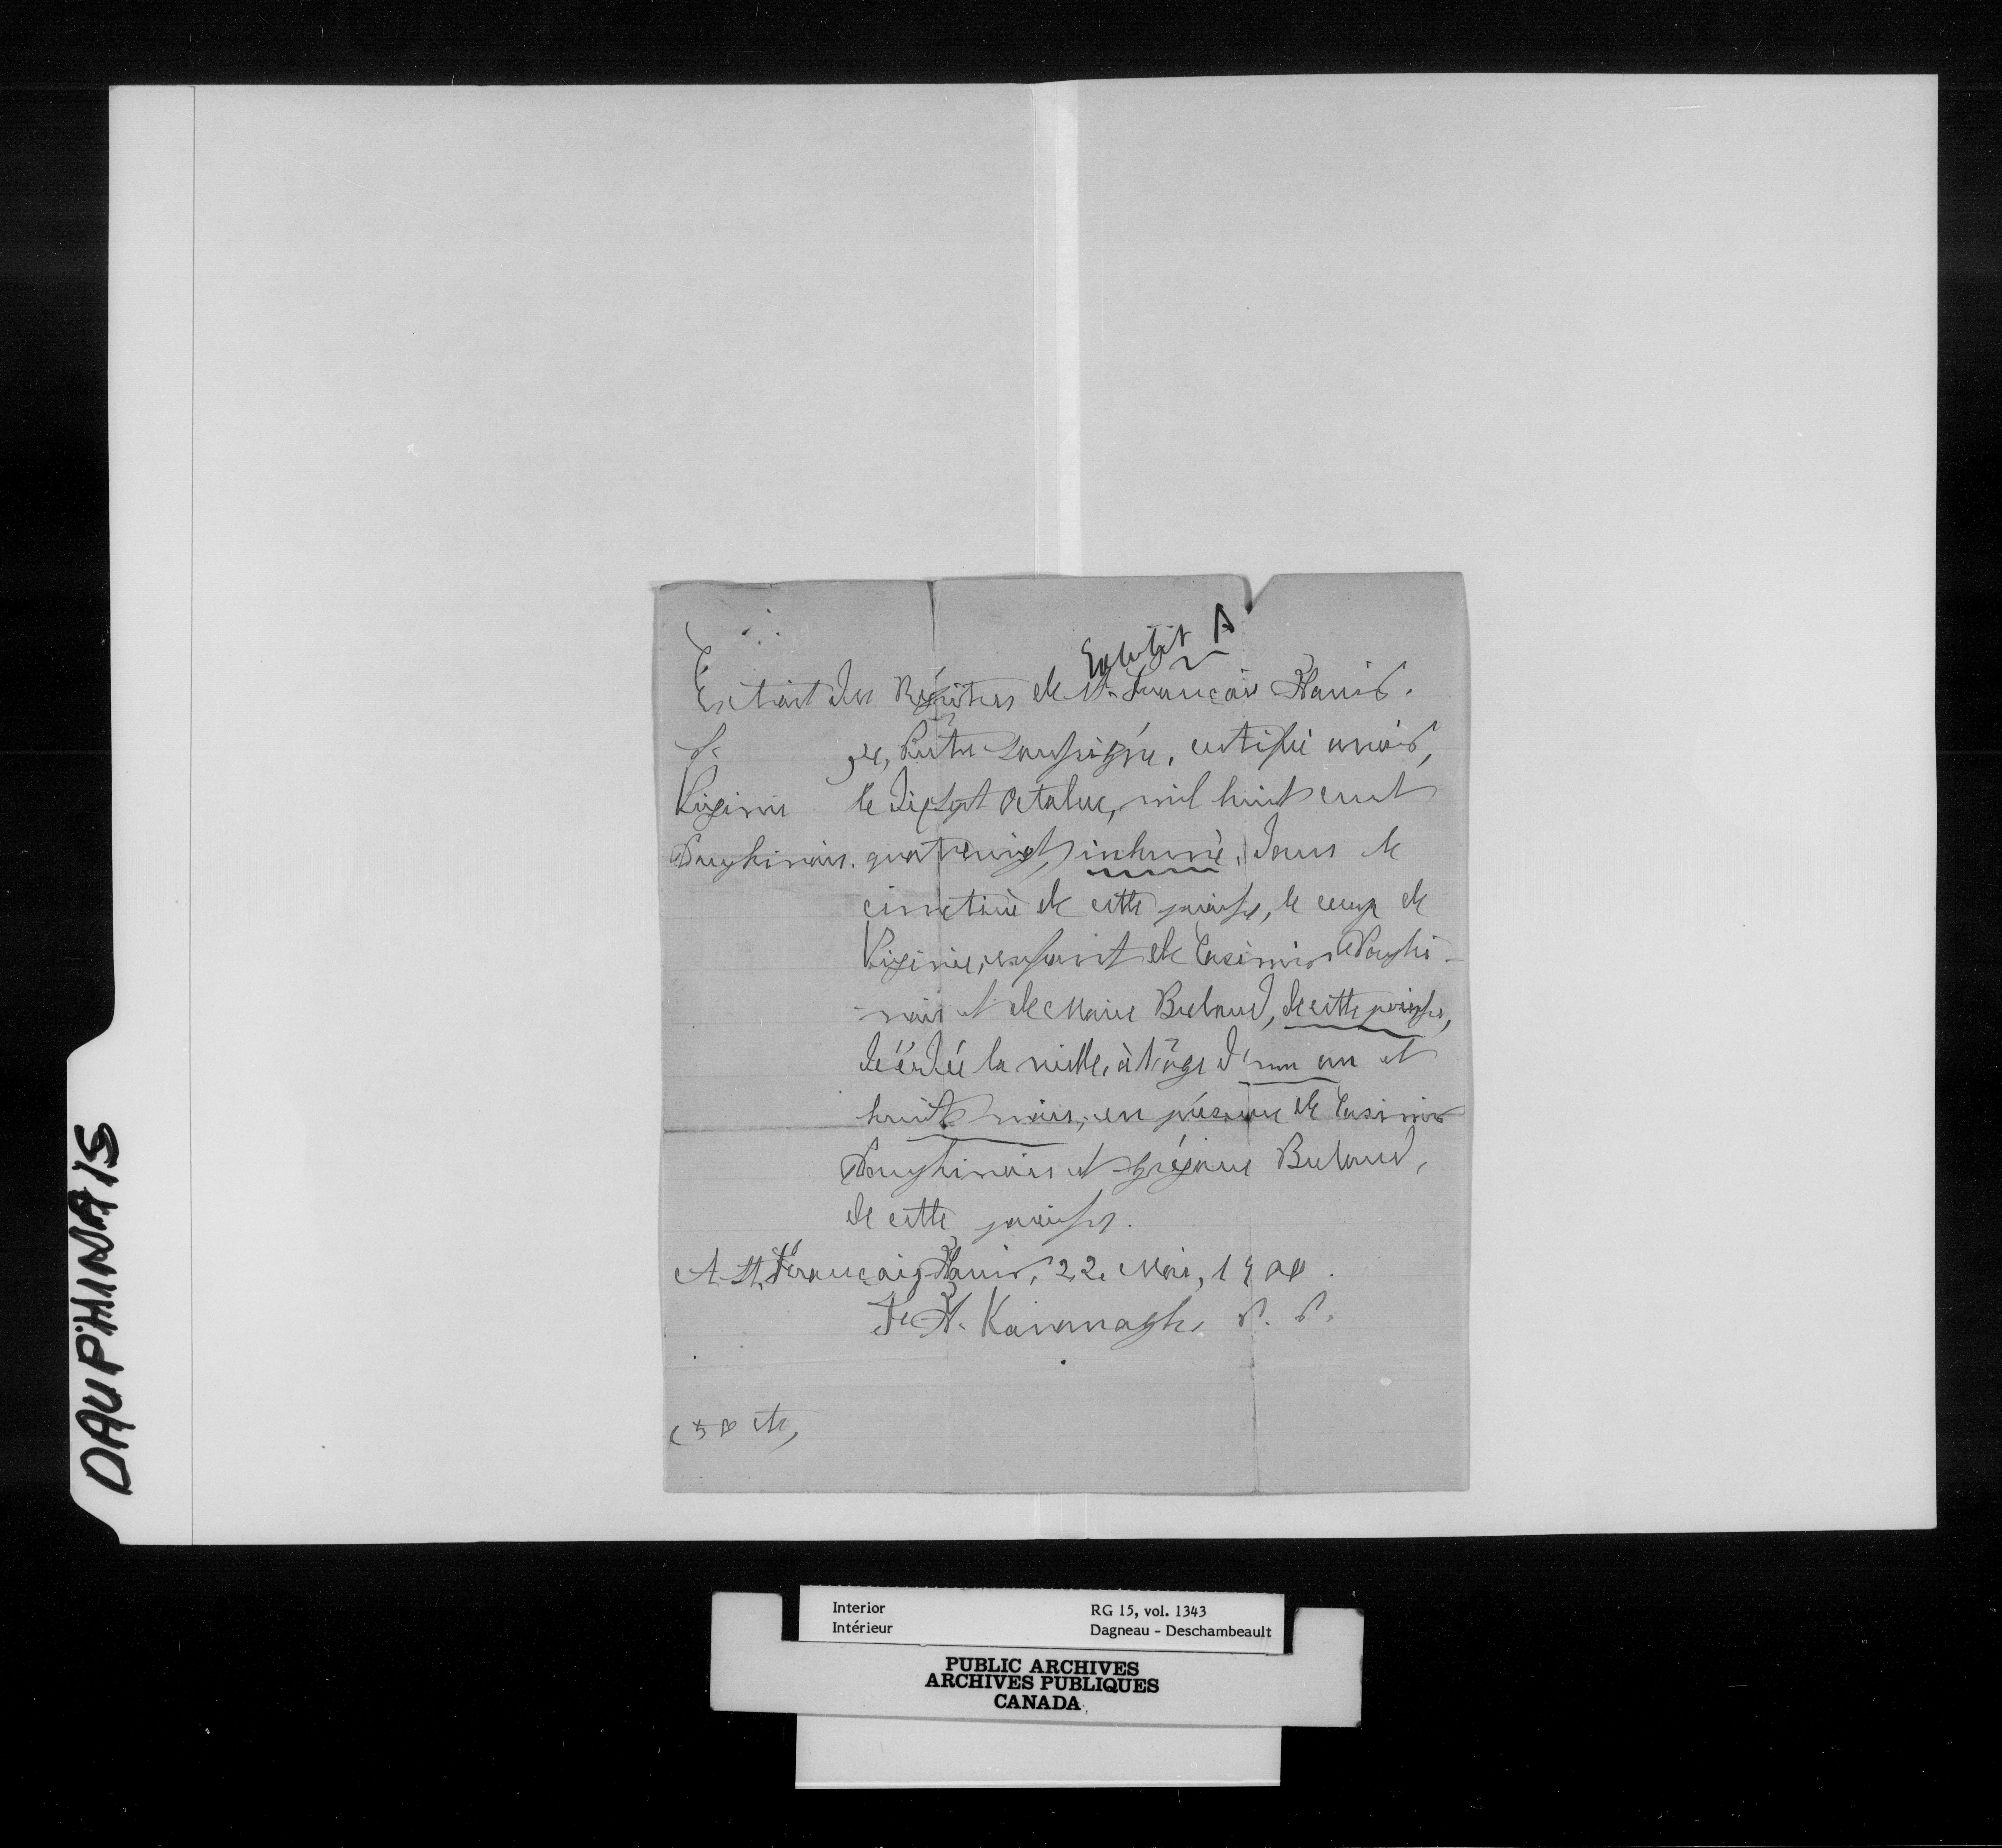 Exhibit A
Extrait des Régistres de St. François Xavier.
S.
Je, Prêtre soussigné, certifie avoir,
Virginie
le dixsept Octobre, mil huit cent
Dauphinais.
quatrevingt, inhumé, dans le
cimetière de cette paroisse, le corps de
Virginie, enfant de Casimir Dauphi-
nais et de Marie Breland, de cette paroisse,
décédée la veille, à l'âge d'un an et
huit mois, en présence de Casimir
Dauphinais et Grégoire Breland,
de cette paroisse.
A St. François Xavier, 22 Mai, 1900.
F. X. Kavanagh, P. P.
(50 cts)
DAUPHINAIS
Interior
Intérieur
RG 15, vol. 1343
Dagneau - Deschambeault
PUBLIC ARCHIVES
ARCHIVES PUBLIQUES
CANADA